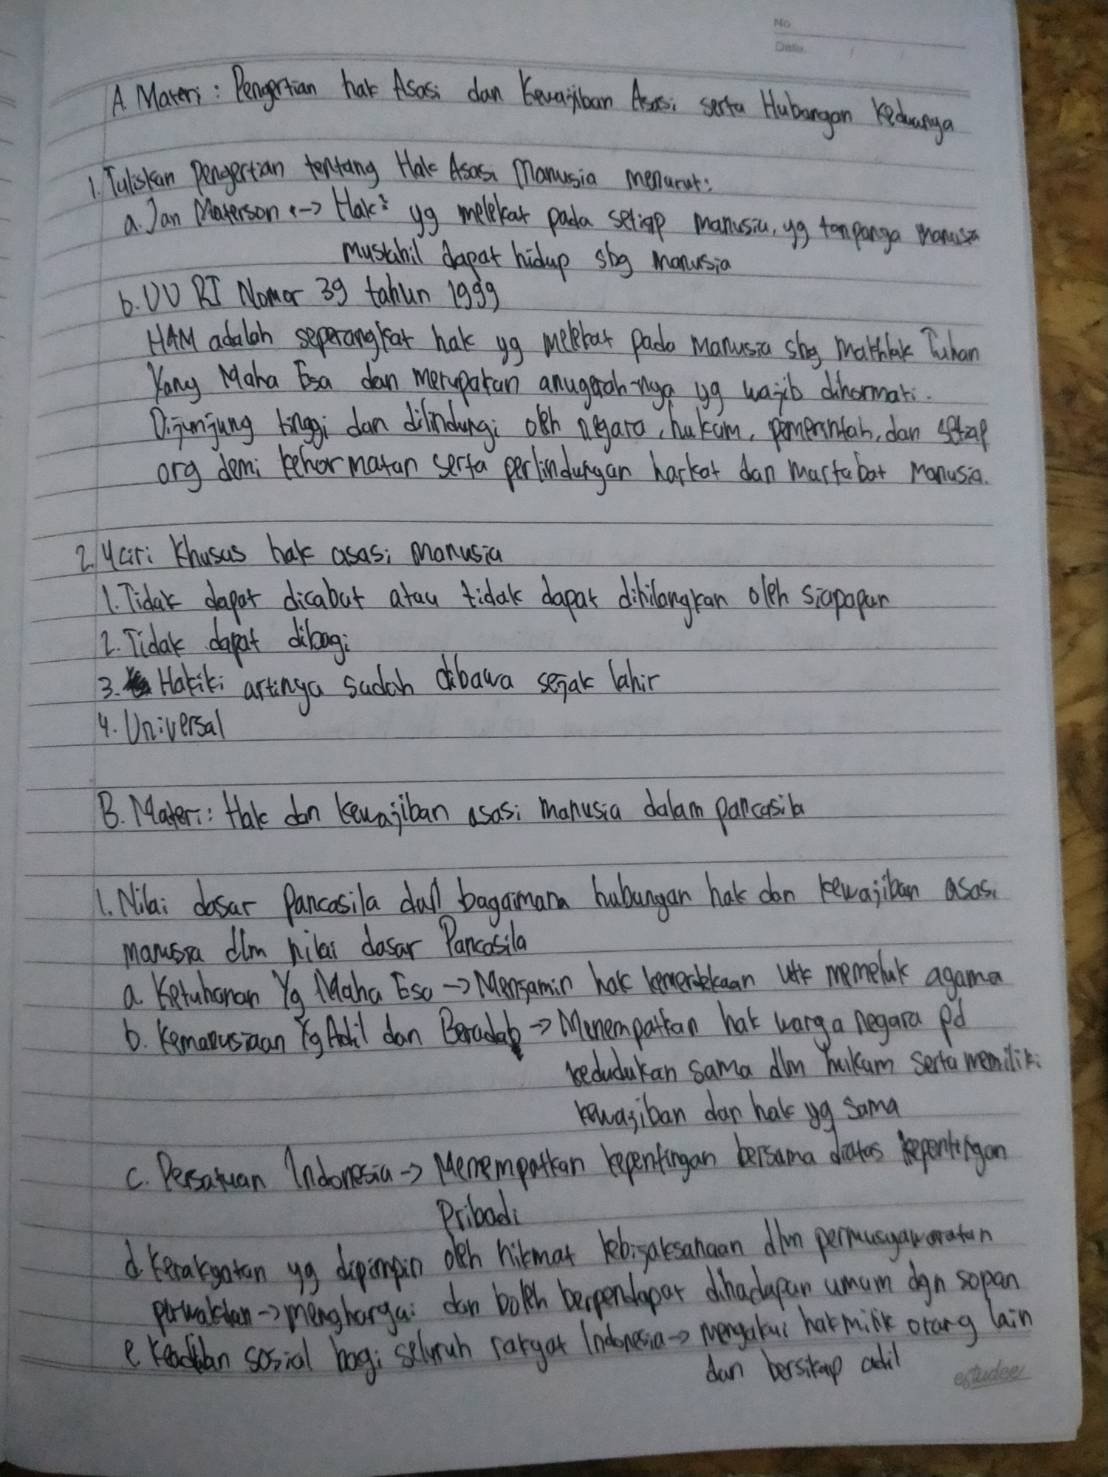 No
Date
A. Materi : Pengertian hak Asasi dan Kewajiban Asasi serta Hubangan Keduanya
1. Tuliskan Pengertian tentang Hak Asasi Manusia menurut:
a. Jan Materson <-> Hak² yg melekat pada setiap manusia, yg tanpanya manusia
mustahil dapat hidup sbg manusia
b. UU RI Nomor 39 tahun 1999
HAM adalah seperangkat hak yg melekat pada manusia sbg makhluk Tuhan
Yang Maha Esa dan merupakan anugerah-nya yg wajib dihormati.
Dijunjung tinggi dan dilindungi oleh negara, hukum, pemerintah, dan setiap
org demi kehormatan serta perlindungan harkat dan martabat manusia.
2. 4 ciri khusus hak asasi manusia
1. Tidak dapat dicabut atau tidak dapat dihilangkan oleh siapapun
2. Tidak dapat dibagi
3. Hakiki artinya sudah dibawa sejak lahir
4. Universal
B. Materi: Hak dan kewajiban asasi manusia dalam pancasila
1. Nilai dasar Pancasila bagaimana hubungan hak dan kewajiban asasi
manusia dlm nilai dasar Pancasila
a. Ketuhanan Yg Maha Esa -> Menjamin hak kemerdekaan utk memeluk agama
b. Kemanusiaan Yg Adil dan Beradab -> Menempatkan hak warga negara pd
kedudukan sama dlm hukum serta memiliki
kewajiban dan hak yg sama
c. Persatuan Indonesia -> Menempatkan kepentingan bersama diatas kepentingan
Pribadi
d. Kerakyatan yg dipimpin oleh hikmat kebijaksanaan dlm permusyawaratan
perwakilan -> menghargai dan boleh berpendapat dihadapan umum dgn sopan
e. Keadilan sosial bagi seluruh rakyat Indonesia -> Mengakui hak milik orang lain
dan bersikap adil
estudee